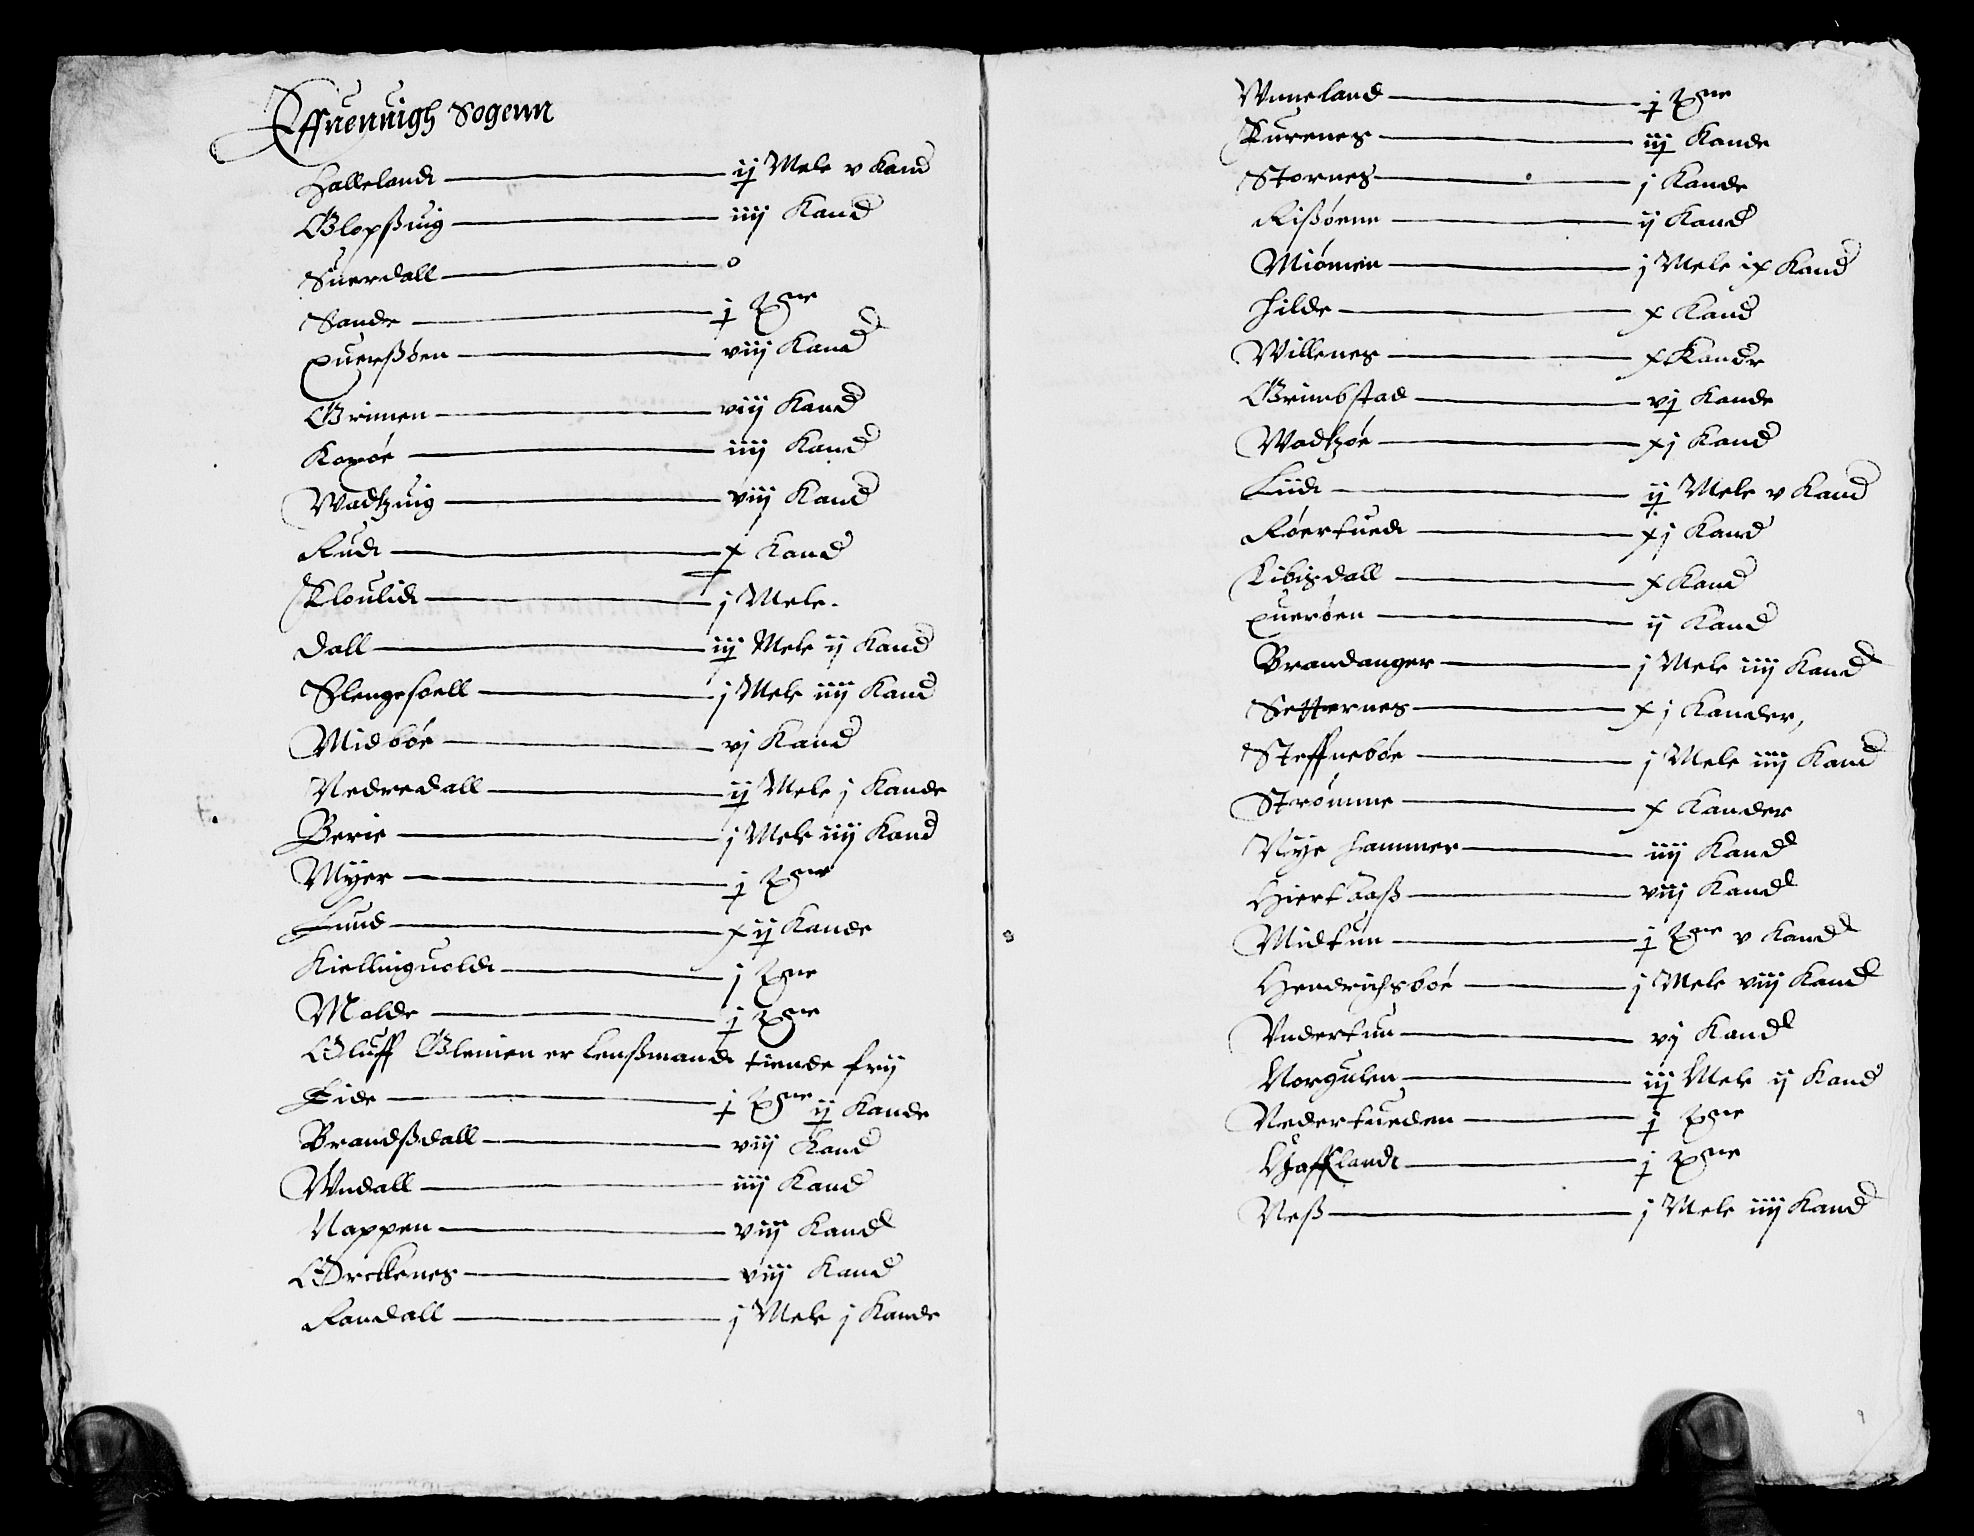 Effuennigh Sogenn
Hallelandt ij Mele v Kand
Glopßuig iiij Kand
Suerdall o
Sande j tne
Quersßøen viij Kand
Grimen viij Kand
Kopøe iiij Kand
Wadtzuig viij Kand
Rudt x Kand
Skoulidt j Mele.
Dall iij Mele ij Kand
Slengesoell j Mele iiij Kand
Midbøe vj Kand
Nedredall ij Mele j Kande
Berie j Mele iiij Kand
Myer j tne
Lund xij Kande
Kiellinguoldt j tne
Molde j tne
Oluff Glemen er Lenßmandt tiende frij
Eide j tne ij Kande
Brandßdall viij Kand
Wndall iiij Kand
Nappen viij Kand
Orckenes viij Kand
Randall j Mele j Kande
Wneland j tne
Furenes iij Kande
Stornes j Kande
Rißøenn ij Kand
Miømen j Mele ix Kand
Hilde x Kand
Willenes x Kande
Grimbstad vj Kande
Wadtzøe xj Kand
Liidt ij Mele v Kand
Røertuedt xj Kand
Libisdall x Kand
Querøen ij Kand
Brandanger j Mele iiij Kand
Setternes xj Kander,
Steffnebøe j Mele iiij Kand
Strømme x Kander
Nye Hammer iiij Kand
Hiertaaß viij Kand
Midtun j tne v Kand
Hendrichsbøe j Mele viij Kand
Vndertun vj Kand
Norgulen iij Mele ij Kand
Nedertueden j tne
Haafflandt j tne
Neß j Mele iiij Kand